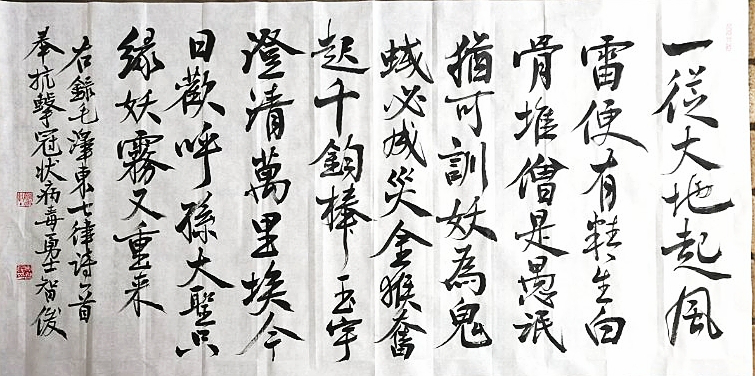 一從大地起風
雷便有精生白
骨堆僧是愚氓
猶可訓妖為鬼
蜮必成災金猴奮
起千鈞棒玉宇
澄清萬里埃今
日歡呼孫大聖只
緣妖霧又重来
右錄毛澤東七律詩一首
奉抗擊冠状病毒勇士智俊